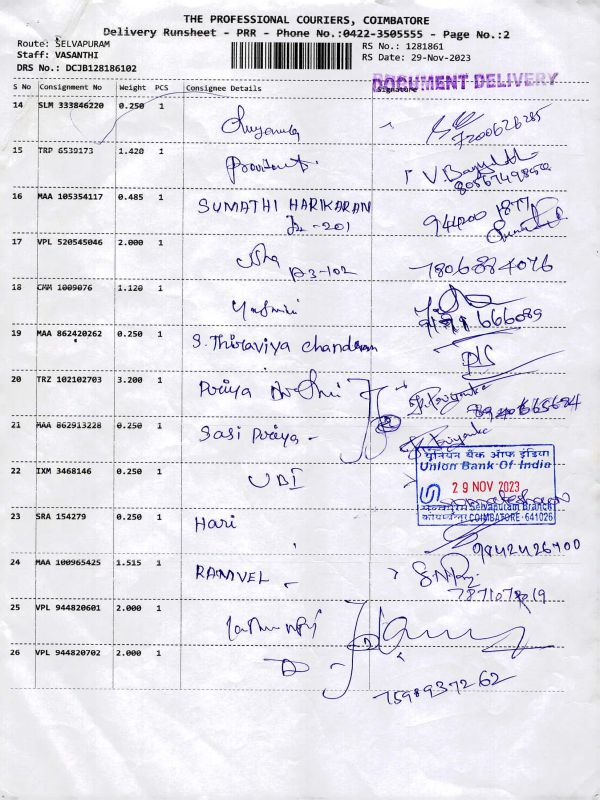 THE PROFESSIONAL COURIERS, COIMBATORE
Delivery Runsheet - PRR - Phone No.:0422-3505555 - Page No.:2
Route: SELVAPURAM
Staff: VASANTHI
DRS No.: DCJB128186102
RS No.: 1281861
RS Date: 29-Nov-2023
DOCUMENT DELIVERY
S No Consignment No Weight PCS Consignee Details Signature
14 SLM 333846220 0.250 1
7200626285
15 TRP 6539173 1.420 1
16 MAA 105354117 0.485 1 SUMATHI HARIKARAN 94420 1877
-201
17 VPL 520545046 2.000 1 Usha 7806884076
D3-102
18 CMM 1009076 1.120 1 Yasmin 666089
19 MAA 862420262 0.250 1 S.Thiraviya chandran
20 TRZ 102102703 3.200 1 Priya
21 MAA 862913228 0.250 1 Sasi Priya -
22 IXM 3468146 0.250 1 UBI
यूनियन बैंक ऑफ इंडिया
Union Bank Of India
29 NOV 2023
Selvapuram Branch
COIMBATORE-641026
23 SRA 154279 0.250 1 Hari 9842426700
24 MAA 100965425 1.515 1 RAMVEL
7871078019
25 VPL 944820601 2.000 1
26 VPL 944820702 2.000 1 D -
7598937262